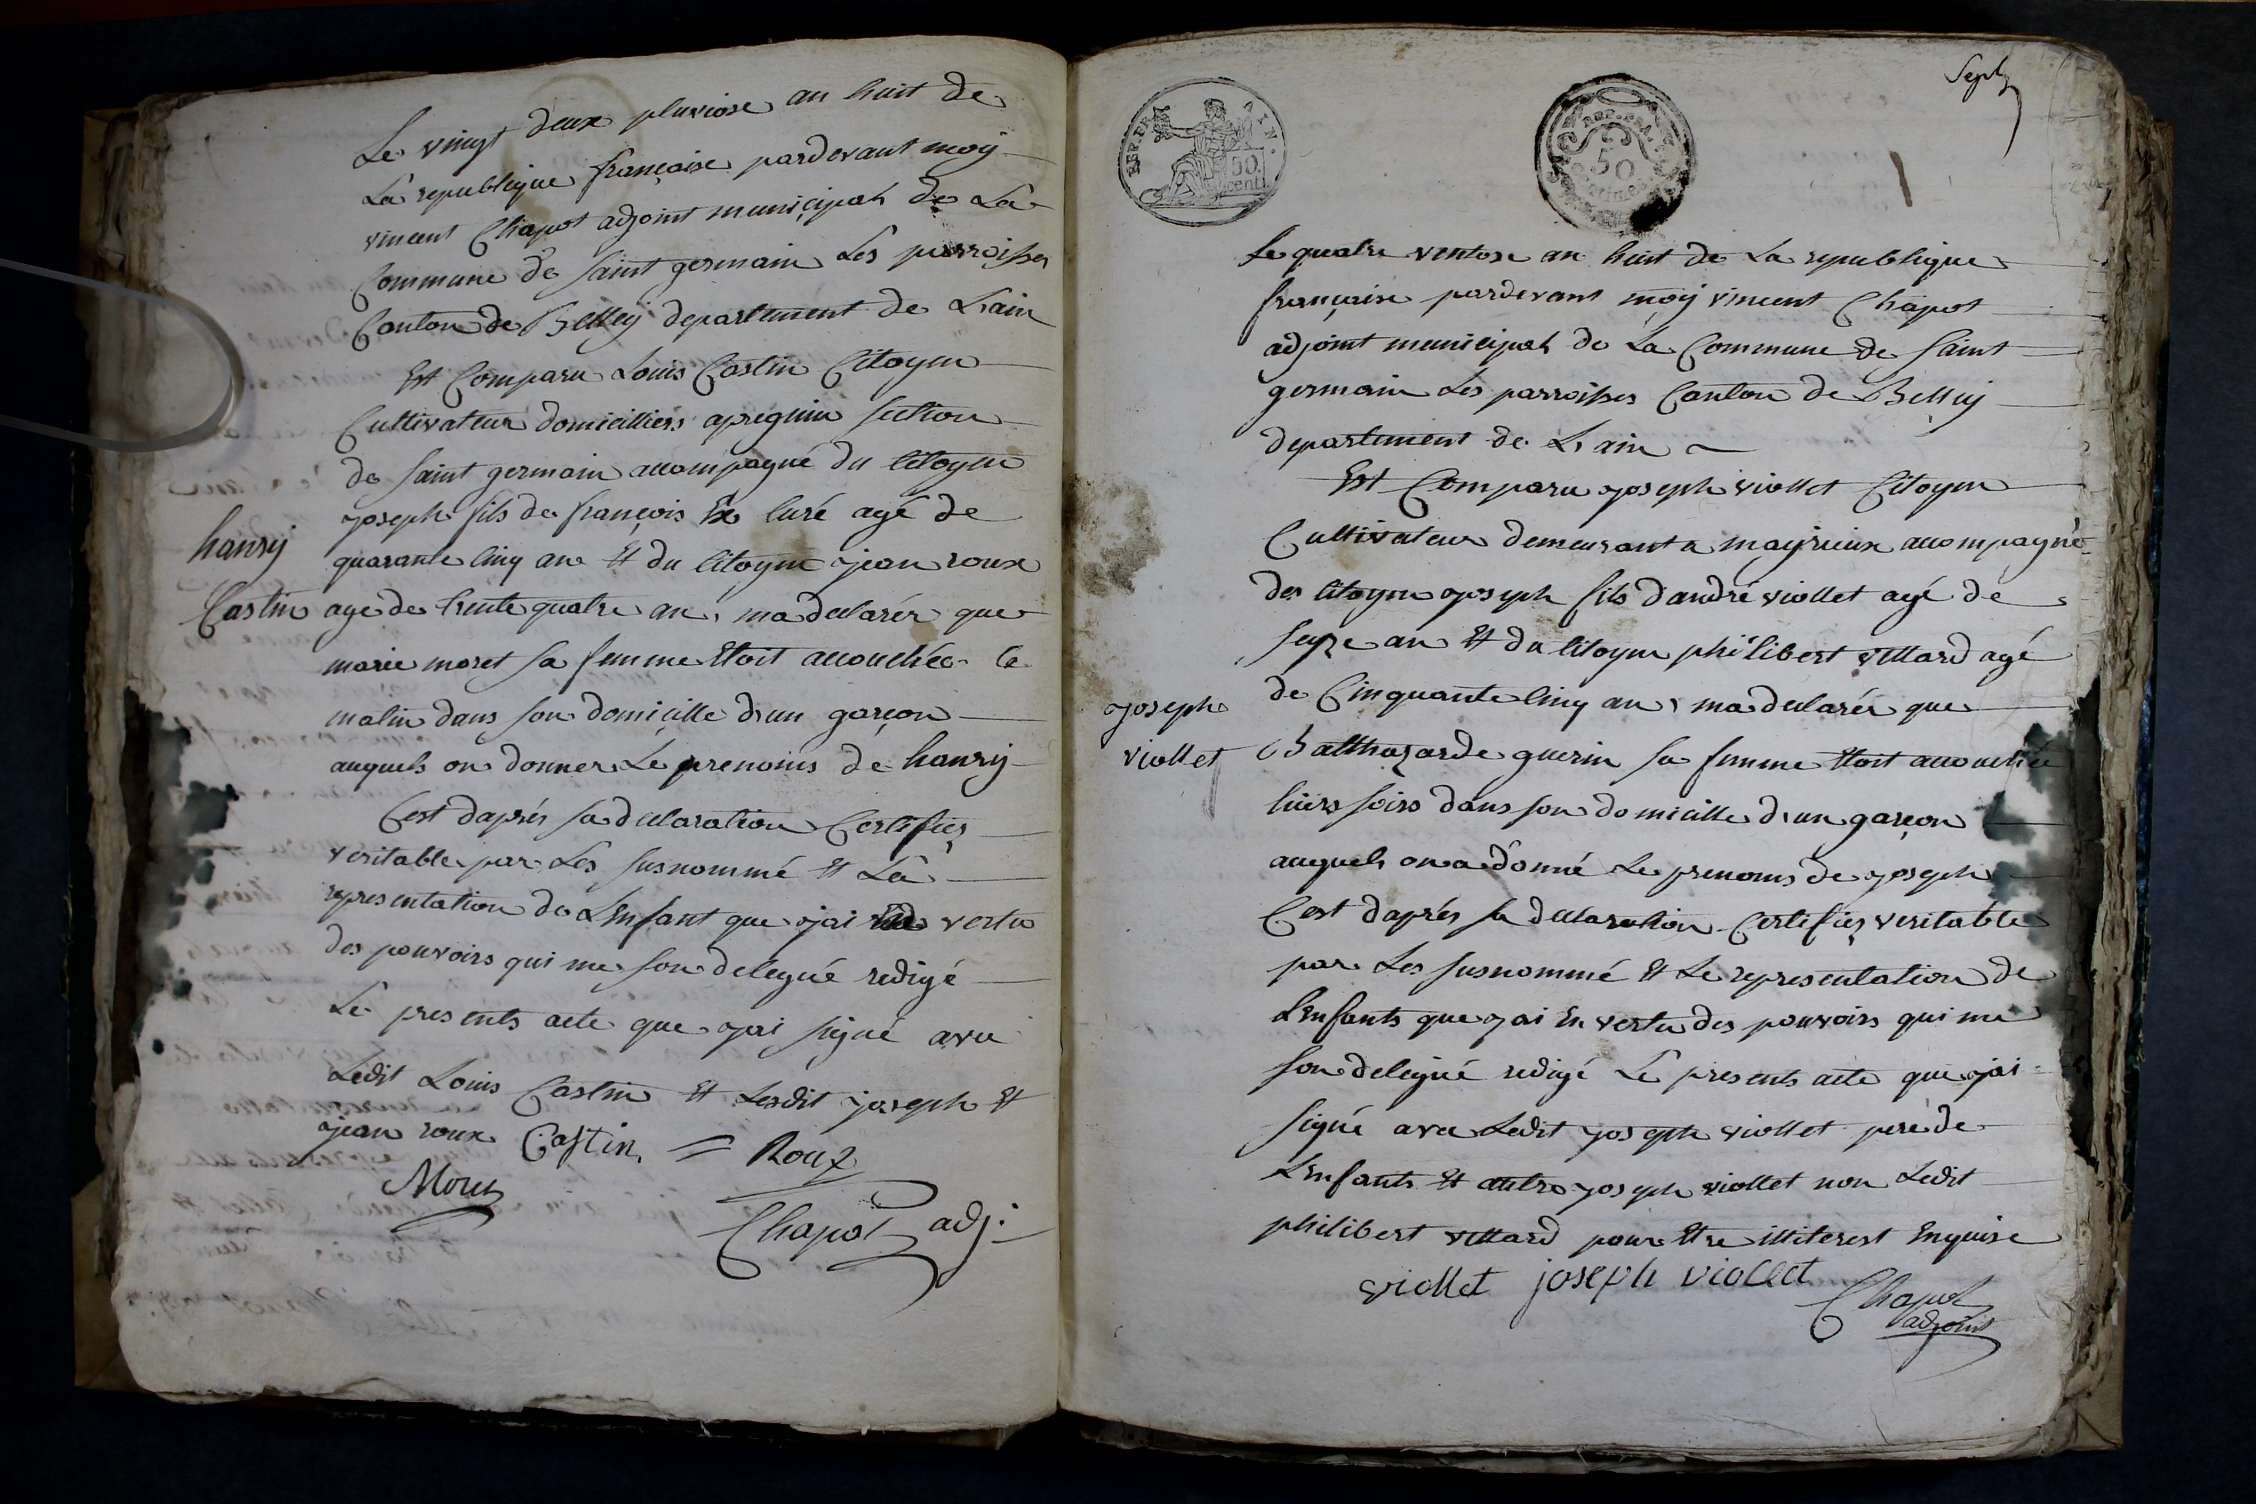 Le vingt deux pluviose an huit de
La republique françoise pardevant moÿ
vincent Chapot adjoint municipah de La
Commune de saint germain Les parroisses
Canton de Belleÿ departement de Lain
Est Comparu Louis Castin Citoyen
Cultivateur domicilliers apregnin section
de saint germain accompagné du Citoyen
joseph fils de françois Ex Curé agé de
hanrÿ
quarante cinq an Et du Citoyen jean roux
Castin
age de trente quatre an, ma declarér que
marie moret sa femme Etoit accouchée ce
matin dans son domicille d'un garçon
auquels on donner Le prenoms de hanrÿ
Cest daprés sa declaration Certifiez
veritable par Les susnommé Et La
representation de LEnfant que jai vertu
des pouvoirs qui me son delegué redigé
Le presents acte que jai signé avec
Ledit Louis Castin Et Lesdit joseph Et
jean roux Castin = Roux
Chapot adj.
Sept
REP. FRA
50
centi.
REP. FRA.
50
Le quatre ventose an huit de La republique
française pardevant moÿ vincent Chapot
adjoint municipah de La Commune de saint
germain Les parroisses Canton de Belleÿ
departement de Lain
Est Comparu joseph viollet Citoyen
Cultivateur demeurant a maÿrieux accompagné
des Citoyen joseph fils dandré viollet agé de
seize an Et du Citoyen philibert villard agé
de Cinquante cinq an, ma declarér que
joseph
viollet
Balthazarde guerin sa femme Etoit accouchée
hiers soirs dans son domicille d'un garçon
auquels on a donné Le prenoms de joseph
Cest daprés sa declaration Certifiez veritable
par Les susnommé Et Le representation de
LEnfants que jai En vertu des pouvoirs qui me
son delegué redigé Le presents acte que jai
signé avec Ledit joseph viollet pere de
LEnfants Et autre joseph viollet non Ledit
philibert villard pour Etre illiterest Enquise
viollet joseph viollet
Chapot
adjoint